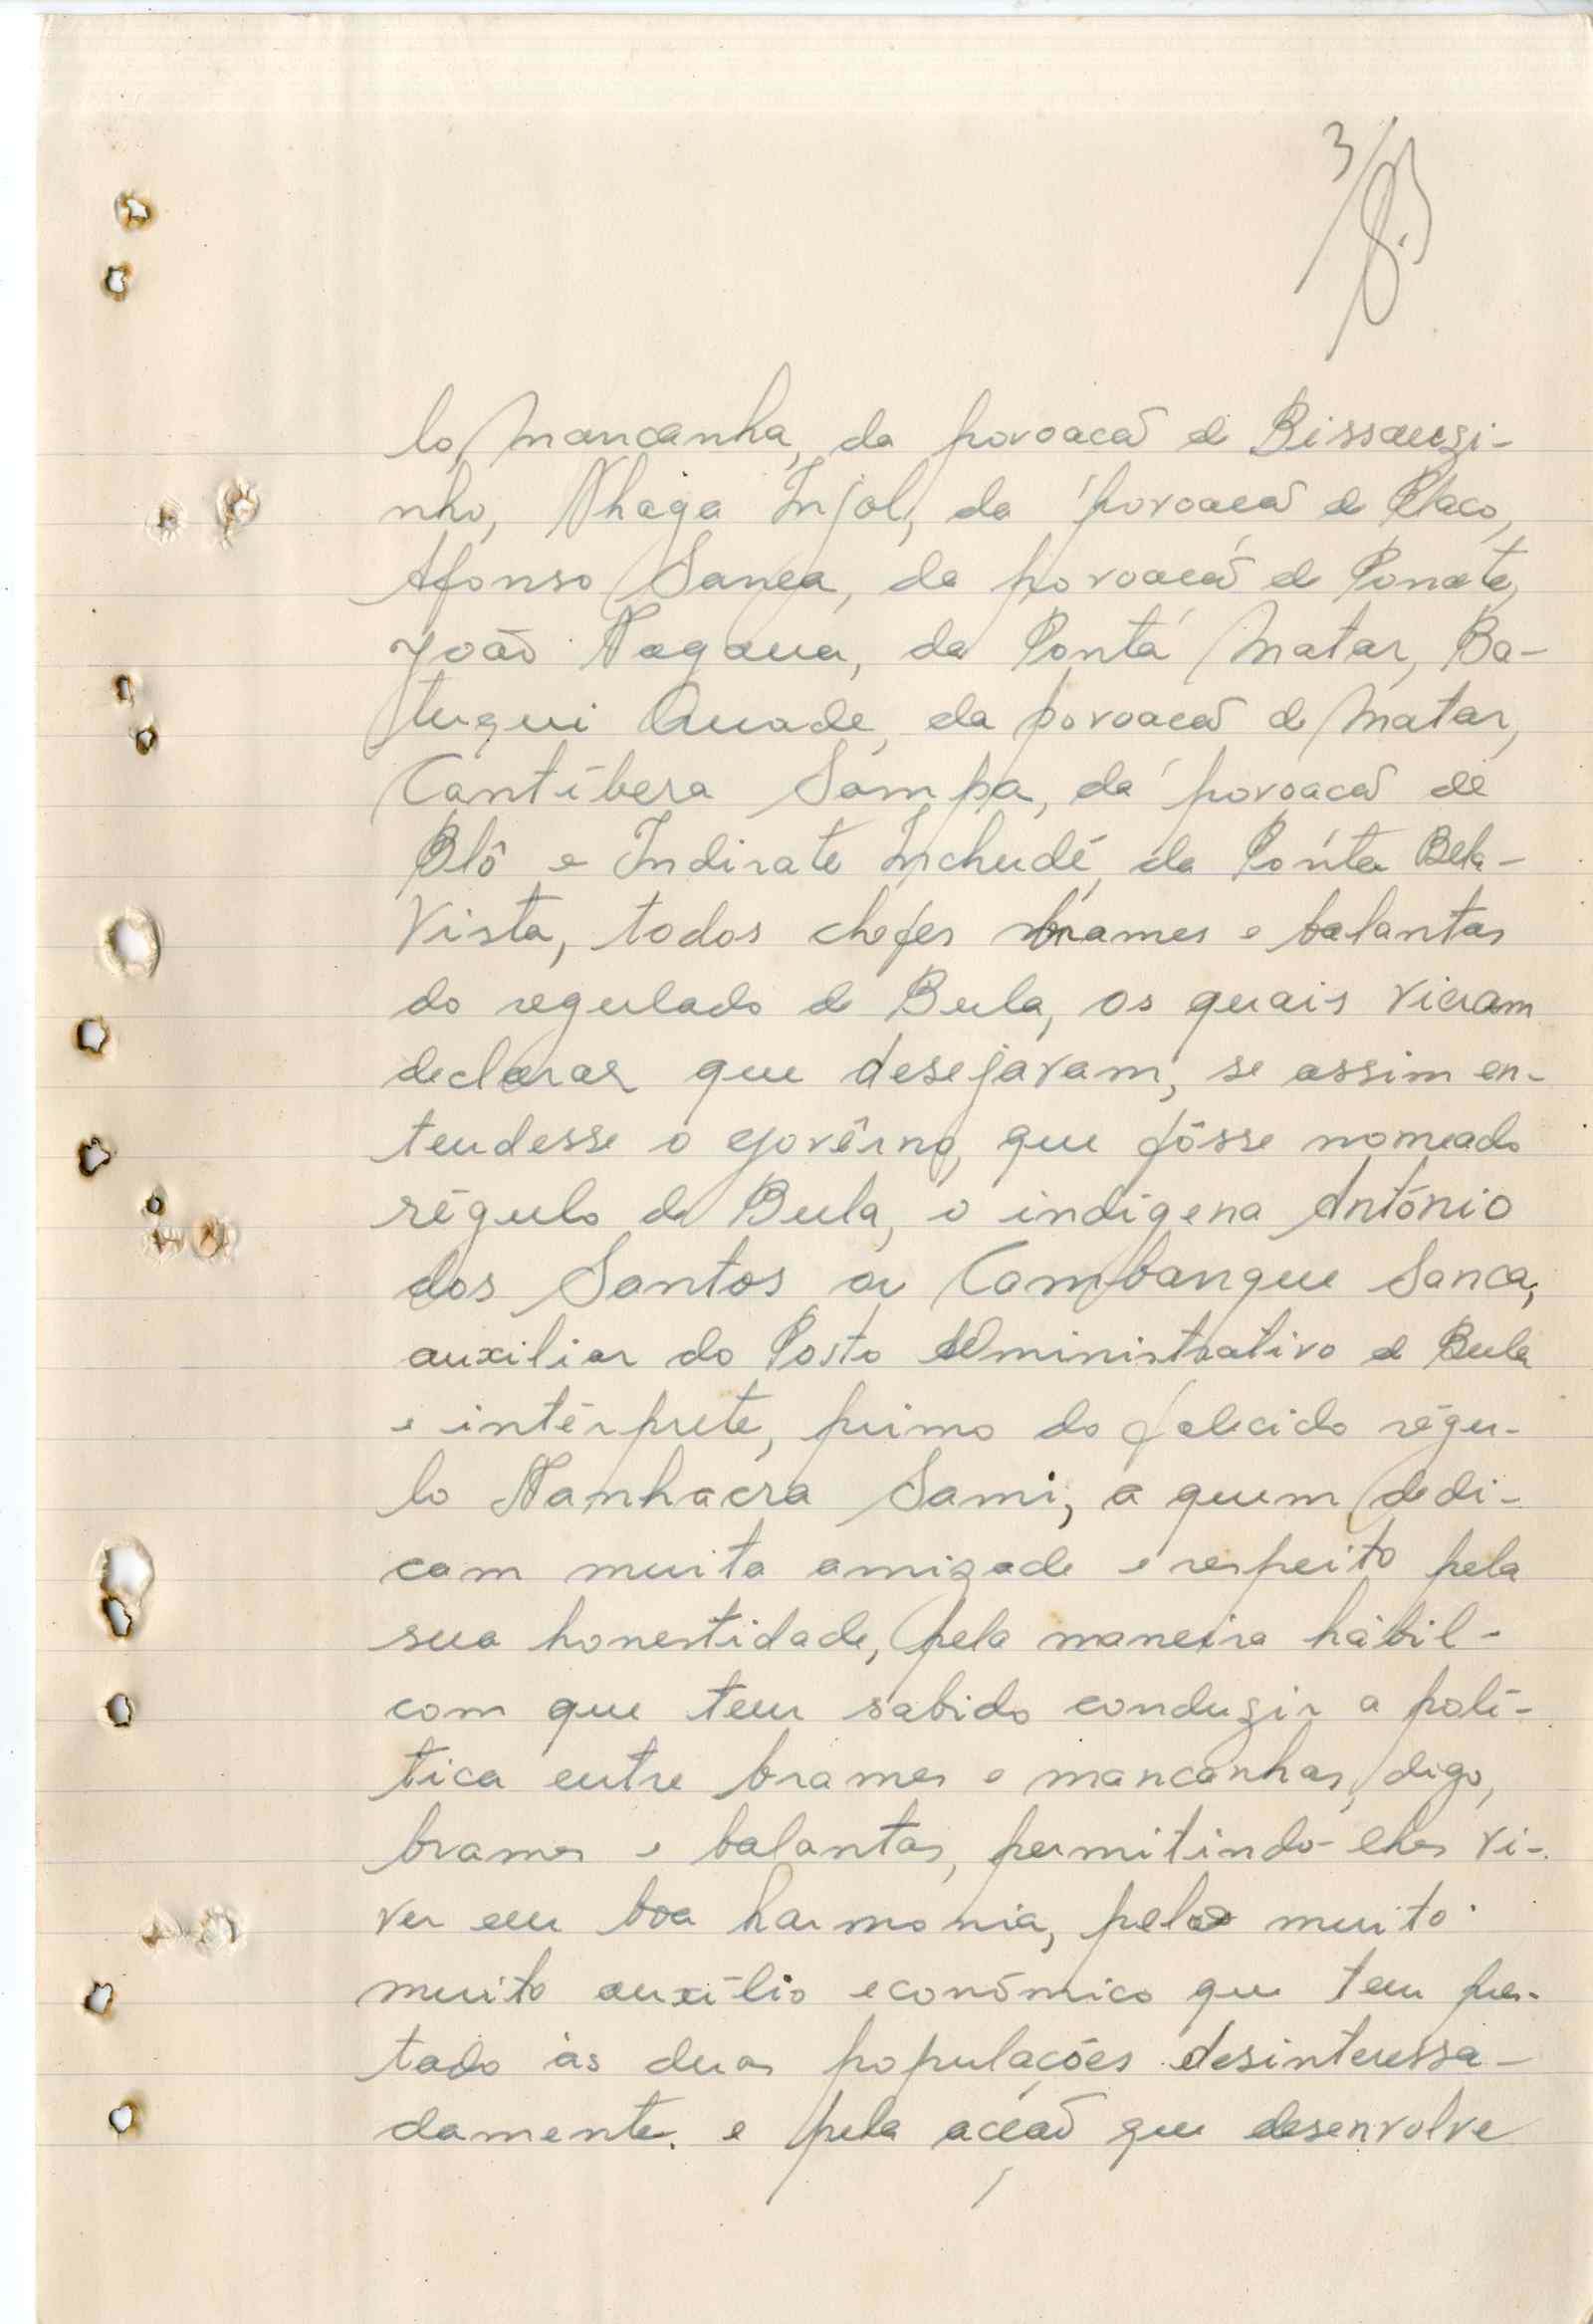 3
lo Mancanha, da povoação de Bissauzi-
nho, Nhaga Injol, da povoação de Placo,
Afonso Sanca, da povoação de Ponate,
João Nagaua, da Ponta Matar, Ba-
tuqui Quade, da povoação de Matar,
Cantíbera Sampa, da povoação de
Blô e Indirate Inchudé, da Ponta Bela-
Vista, todos chefes brames e balantas
do regulado de Bula, os quais vieram
declarar que desejavam, se assim en-
tendesse o govêrno, que fôsse nomeado
régulo de Bula, o indígena António
dos Santos ou Cambanque Sanca,
auxiliar do Posto Administrativo de Bula
e intérprete, primo do falecido régu-
lo Nanhacra Sami, a quem dedi-
cam muita amizade e respeito pela
sua honestidade, pela maneira hábil-
com que tem sabido conduzir a polí-
tica entre brames e mancanhas, digo,
brames e balantas, permitindo-lhes vi-
ver em boa harmonia, pelo muito
muito auxílio económico que tem pres-
tado às duas populações desinteressa-
damente. e pela acção que desenvolve